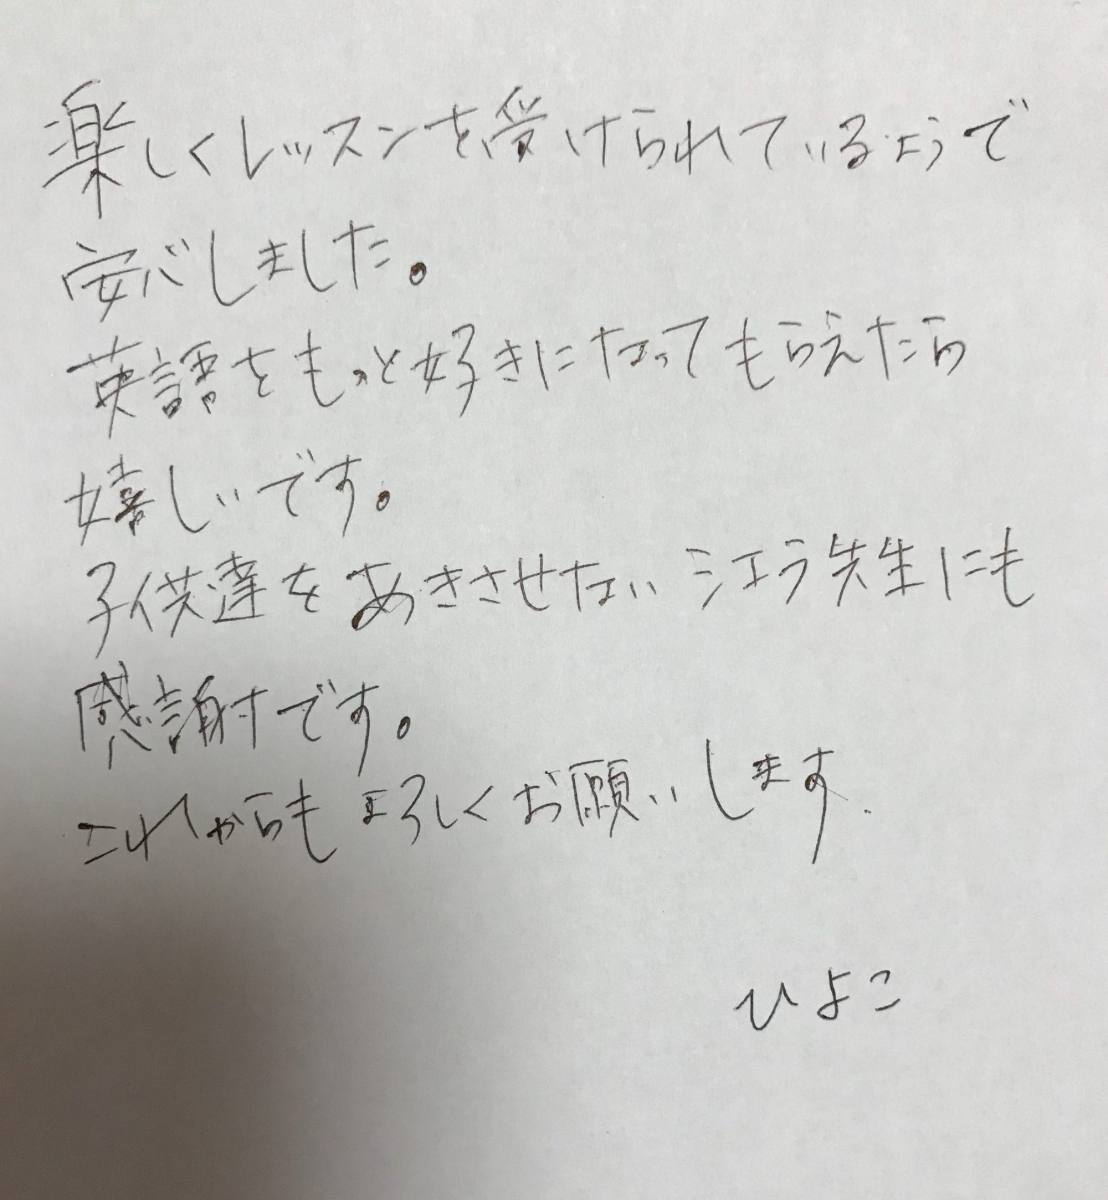 楽しくレッスンを受けられているようで
安心しました。
英語をもっと好きになってもらえたら
嬉しいです。
子供達をあきさせないシエラ先生にも
感謝です。
これからもよろしくお願いします.
ひよこ